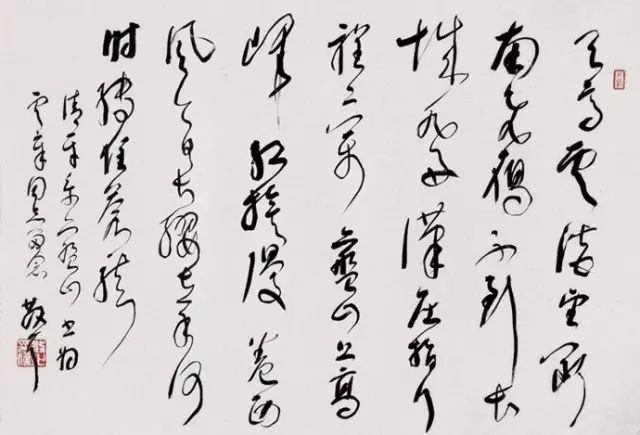 天高雲淡望断
南飛雁不到长
城非好漢屈指行
程二万六盘山上高
峰红旗漫卷西
风今日长缨在手何
时缚住苍龙
清平乐六盘山书为
同志留念